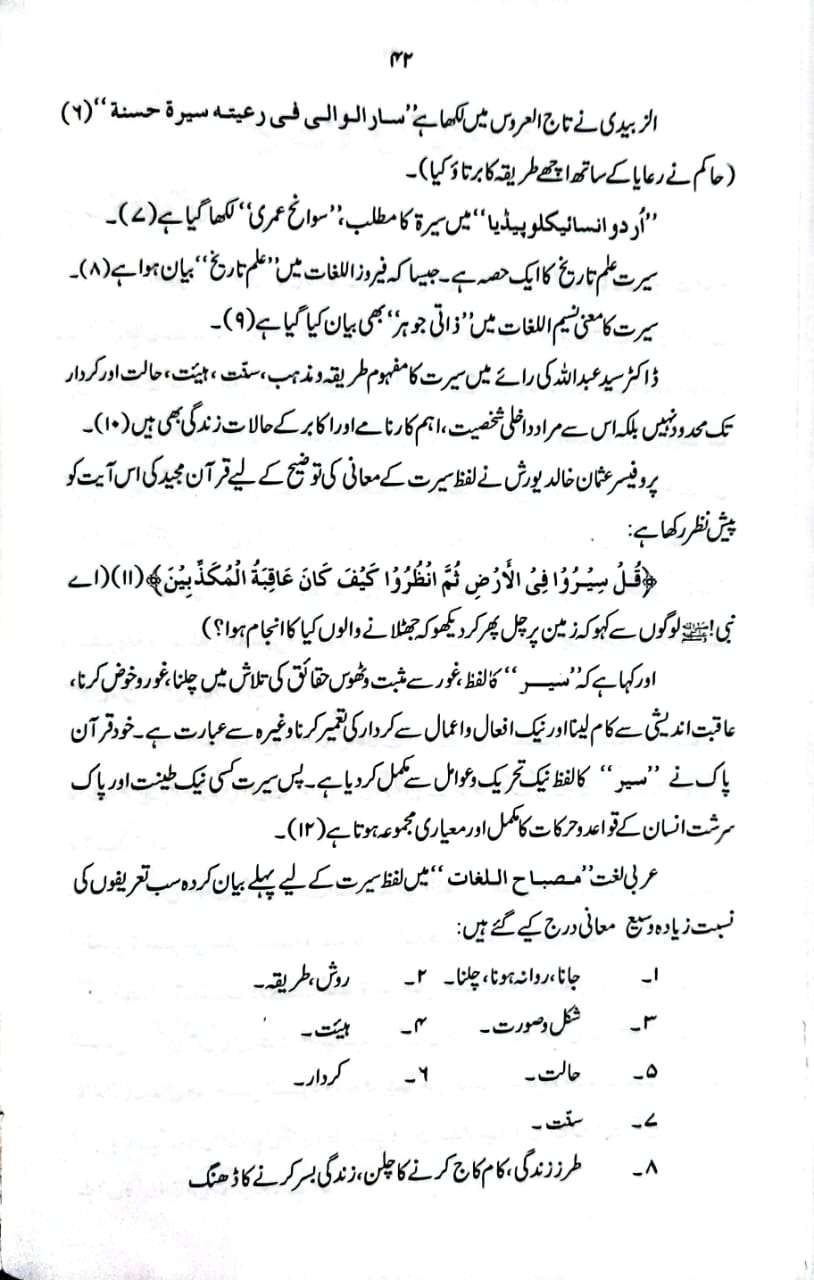 ۴۲
الزبیدی نے تاج العروس میں لکھا ہے ”سار الوالی فی رعیتہ سیرة حسنة“ (۶)
(حاکم نے رعایا کے ساتھ اچھے طریقہ کا برتاؤ کیا)۔
”اُردو انسائیکلو پیڈیا“ میں سیرۃ کا مطلب، ”سوانح عمری“ لکھا گیا ہے (۷)۔
سیرت علم تاریخ کا ایک حصہ ہے۔ جیسا کہ فیروز اللغات میں ”علم تاریخ“ بیان ہوا ہے (۸)۔
سیرت کا معنی نسیم اللغات میں ”ذاتی جوہر“ بھی بیان کیا گیا ہے (۹)۔
ڈاکٹر سید عبداللہ کی رائے میں سیرت کا مفہوم طریقہ و مذہب، سنّت، ہیئت، حالت اور کردار
تک محدود نہیں بلکہ اس سے مراد داخلی شخصیت، اہم کارنامے اور اکابر کے حالات زندگی بھی ہیں (۱۰)۔
پروفیسر عثمان خالد یورش نے لفظ سیرت کے معانی کی توضیح کے لیے قرآن مجید کی اس آیت کو
پیش نظر رکھا ہے:
﴿قُلْ سِيْرُوْا فِى الْاَرْضِ ثُمَّ انْظُرُوْا كَيْفَ كَانَ عَاقِبَةُ الْمُكَذِّبِيْنَ﴾ (۱۱) (اے
نبی! ﷺ لوگوں سے کہو کہ زمین پر چل پھر کر دیکھو کہ جھٹلانے والوں کیا کا انجام ہوا؟)
اور کہا ہے کہ ”سیر“ کا لفظ، غور سے مثبت و ٹھوس حقائق کی تلاش میں چلنا، غور و خوض کرنا،
عاقبت اندیشی سے کام لینا اور نیک افعال و اعمال سے کردار کی تعمیر کرنا وغیرہ سے عبارت ہے۔ خود قرآن
پاک نے ”سیر“ کا لفظ نیک تحریک و عوامل سے مکمل کر دیا ہے۔ پس سیرت کسی نیک طینت اور پاک
سرشت انسان کے قواعد و حرکات کا مکمل اور معیاری مجموعہ ہوتا ہے (۱۲)۔
عربی لغت ”مصباح اللغات“ میں لفظ سیرت کے لیے پہلے بیان کردہ سب تعریفوں کی
نسبت زیادہ وسیع معانی درج کیے گئے ہیں:
۱۔ جانا، روانہ ہونا، چلنا۔ ۲۔ روش، طریقہ۔
۳۔ شکل و صورت۔ ۴۔ ہیئت۔
۵۔ حالت۔ ۶۔ کردار۔
۷۔ سنّت۔
۸۔ طرز زندگی، کام کاج کرنے کا چلن، زندگی بسر کرنے کا ڈھنگ